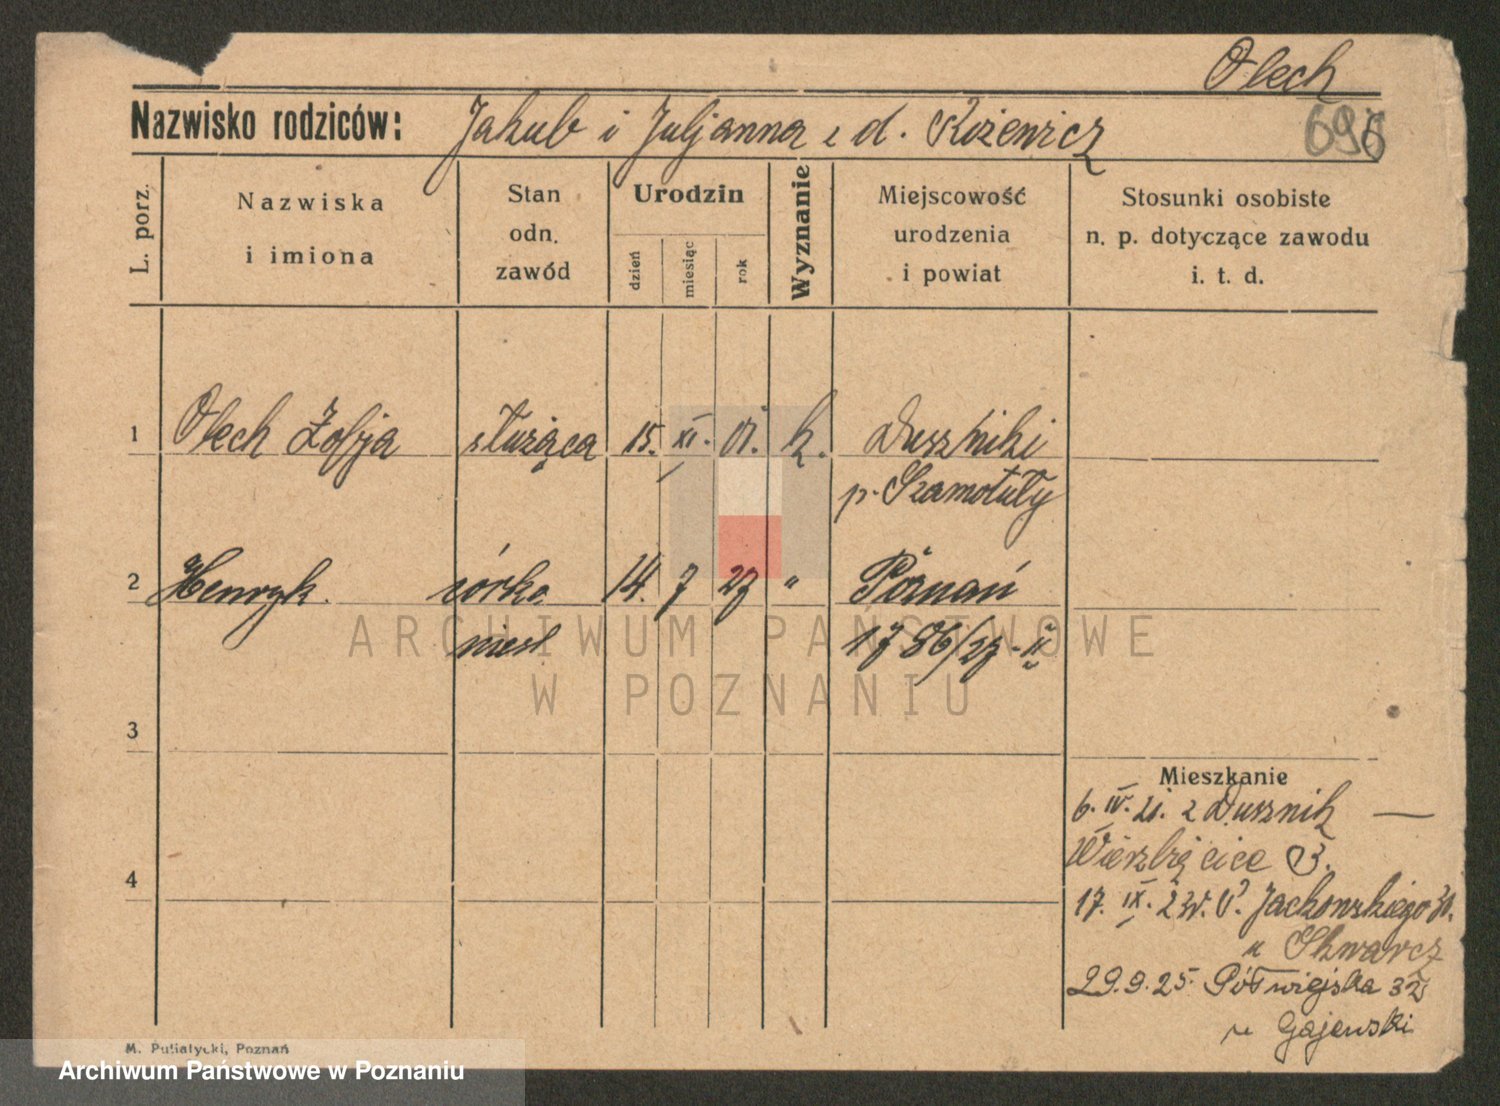 Olech
Nazwisko rodziców: Jakub i Juljanna z d. Kiżewicz
696
L. porz.
Nazwiska
i imiona
Stan
odn.
zawód
Urodzin
dzień
miesiąc
rok
Wyznanie
Miejscowość
urodzenia
i powiat
Stosunki osobiste
n. p. dotyczące zawodu
i. t. d.
1 Olech Zofja służąca 15. XI. 01. k. Duszniki
p. Szamotuły
2 Henryk córka 14. 7 27 " Poznań
niesl 1786/27-II
3
4
Mieszkanie
6. IV. 21. z Dusznik —
Wierzbięcice
17. IX. Jackowskiego 30.
u Skwarcz
29.9.25. Półwiejska 32
u Gajewski
M. Putiatycki, Poznań
ARCHIWUM PAŃSTWOWE
W POZNANIU
Archiwum Państwowe w Poznaniu